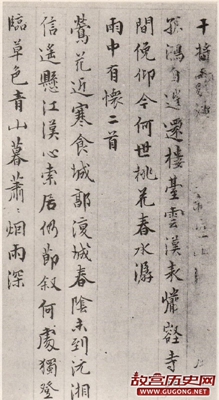 孤鴻自遠還樓臺雲漢表燈磬寺
間俛仰今何世桃花春水潺
雨中有懷二首
鶯花近寒食城郭城春陰未到沅湘
信遙懸江漢心索居仍節敘何處獨登
臨草色青山暮蕭〻烟雨深
故宫历史网